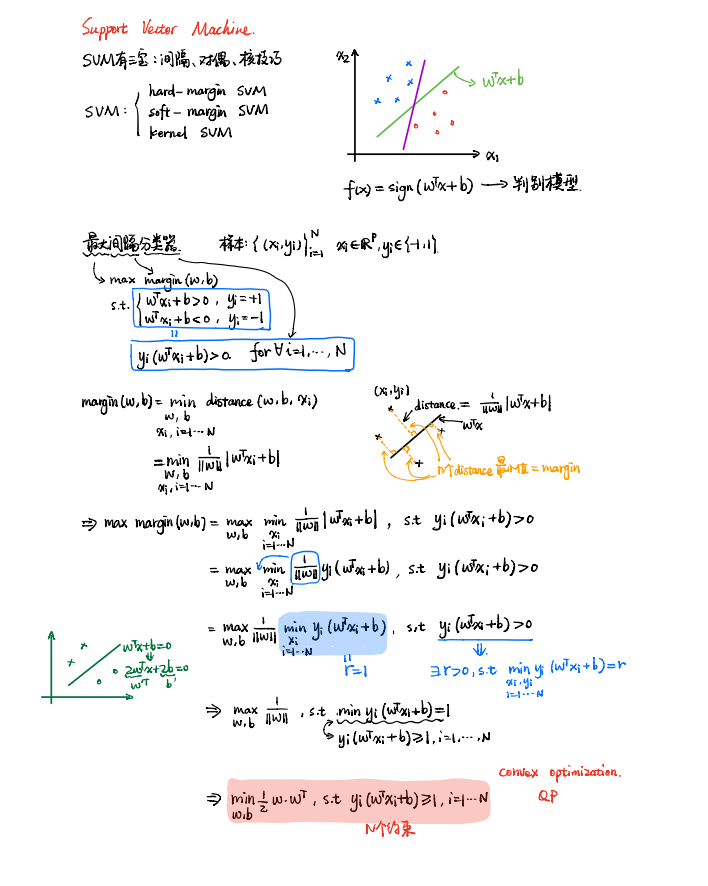 Support Vector Machine.
SVM有三宝：间隔、对偶、核技巧
SVM: { hard-margin SVM
soft-margin SVM
kernel SVM
x₂
wᵀx+b
x₁
f(x) = sign(wᵀx+b) → 判别模型.
最大间隔分类器. 样本: {(xᵢ,yᵢ)}ᵢ₌₁ᴺ xᵢ∈ℝᵖ, yᵢ∈{-1,1}
max margin(w,b)
s.t. { wᵀxᵢ+b>0, yᵢ=+1
wᵀxᵢ+b<0, yᵢ=-1
=
yᵢ(wᵀxᵢ+b)>0. for ∀i=1,…,N
margin(w,b) = min distance(w,b,xᵢ)
w, b
xᵢ, i=1…N
= min 1/‖w‖ |wᵀxᵢ+b|
w, b
xᵢ, i=1…N
(xᵢ,yᵢ)
distance. = 1/‖w‖ |wᵀx+b|
wᵀx
n个distance最小值 = margin
⇒ max margin(w,b) = max min 1/‖w‖ |wᵀxᵢ+b|, s.t yᵢ(wᵀxᵢ+b)>0
w,b xᵢ
i=1…N
= max min 1/‖w‖ yᵢ(wᵀxᵢ+b), s.t yᵢ(wᵀxᵢ+b)>0
w,b xᵢ
i=1…N
= max 1/‖w‖ min yᵢ(wᵀxᵢ+b), s,t yᵢ(wᵀxᵢ+b)>0
w,b xᵢ
i=1…N
=
r=1
⇓
∃r>0, s.t min yᵢ(wᵀxᵢ+b)=r
xᵢ,yᵢ
i=1…N
wᵀx+b=0
⇓
2wᵀx+2b=0
wᵀ b'
⇒ max 1/‖w‖, s.t min yᵢ(wᵀxᵢ+b)=1
w,b
yᵢ(wᵀxᵢ+b)≥1, i=1,…,N
convex optimization.
QP
⇒ min 1/2 w·wᵀ, s.t yᵢ(wᵀxᵢ+b)≥1, i=1…N
w,b
N个约束